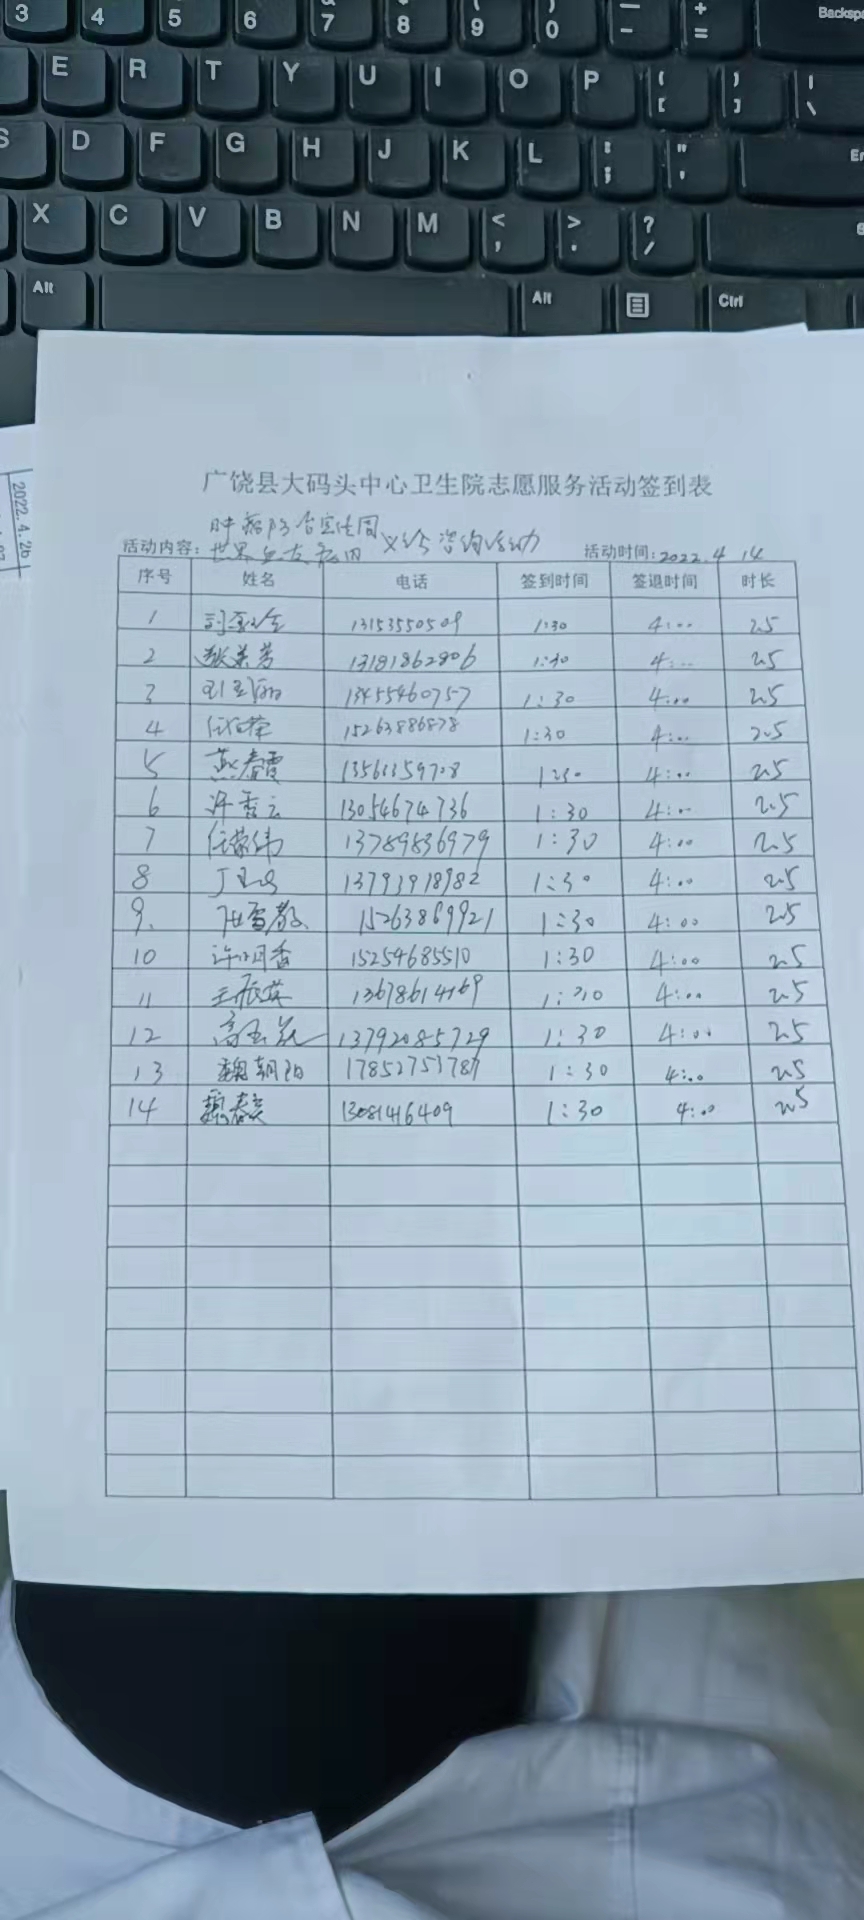 3 4 5 6 7 8 9 ) 0 — - + = Backspa
E R T Y U I O P { [ } ] | \
S D F G H J K L : ; " ' En
X C V B N M < , > . ? /
Alt Alt Ctrl
2022.4.26
广饶县大码头中心卫生院志愿服务活动签到表
肿瘤防治宣传周
活动内容: 世界血友病日 义诊咨询活动 活动时间:2022.4 14
序号 姓名 电话 签到时间 签退时间 时长
1 13153550509 1:30 4:00 2.5
2 13181862806 1:30 4:00 2.5
3 13455460757 1:30 4:00 2.5
4 15263886878 1:30 4:00 2.5
5 燕春霞 1:30 4:00 2.5
6 许香云 13054674736 1:30 4:00 2.5
7 任荣伟 13789836979 1:30 4:00 2.5
8 13793918982 1:30 4:00 2.5
9. 15263869921 1:30 4:00 2.5
10 许明香 15254685510 1:30 4:00 2.5
11 王振英 13678614169 1:30 4:00 2.5
12 13792085729 1:30 4:00 2.5
13 魏朝阳 17852753787 1:30 4:00 2.5
14 魏春美 13081416409 1:30 4:00 2.5